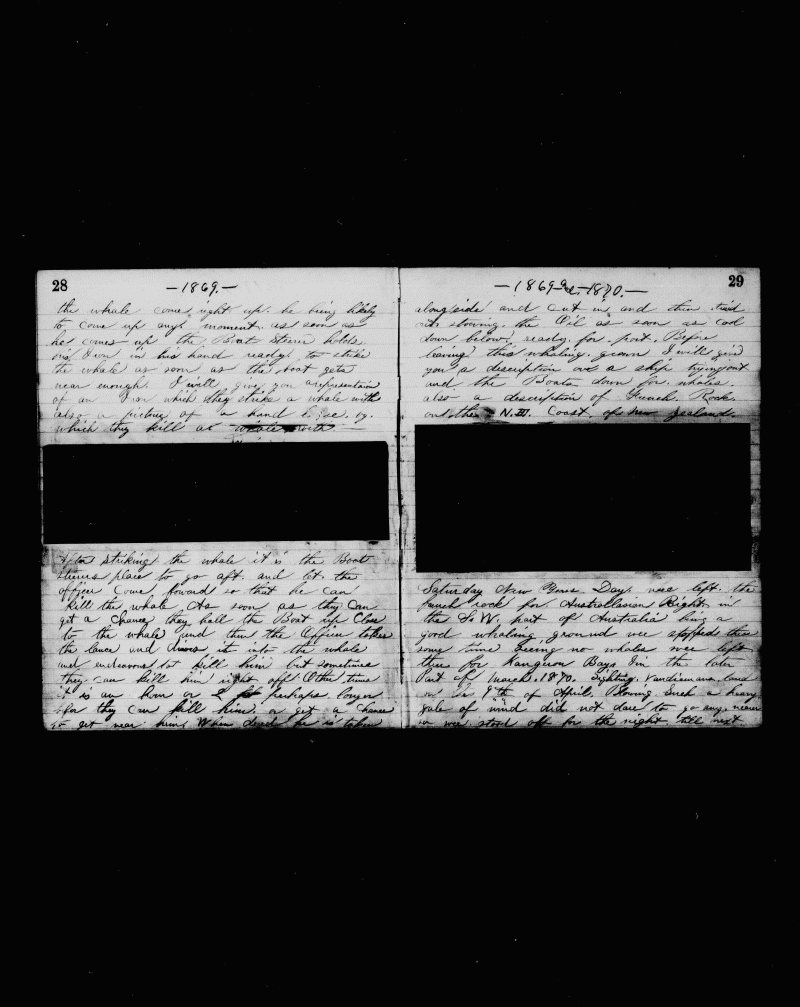 28
-1869.-
the whale come right up. he being likely
to come up any moment. as soon as
he comes up the Boat steerer holds
his Iron in his hand ready to strike
the whale as soon as the boat gets
near enough. I will give you a representain
of an Iron which they strike a whale with
also a picture of a hand
which they kill a whale with
After striking the whale it is the Boat
steerers place to go aft. and let the
officer come foward so that he can
kill the whale, As soon as they can
get a chance they hall the Boat up Close
to the whale and then the Officer takes
the lance and drives it into the whale
and endeavors to kill him but sometimes
they can kill him right off Other times
it is an hour or perhaps longer
they can kill him. or get a chance
to get near him. When dead he is taken
29
-1869 -1870.-
alongside and cut in and then tried
out stowing the Oil as soon as cool
down below, ready for port. Before
leaving this whaling groun I will give
you a description ov a ship trying out
and the Boats down for whales.
also a description of French Rock
on the N.W. Coast of New Zealand.
Saturday New Years Day wee left the
french rock for Australlasian Bight in
the S. W. part of Australia being a
good whaling ground wee stopped there
some time Seeing no whales wee left
there for Kanguon Bay. I'm the later
Part of March. 1870. Sighting Vandiemans land
on 9th of April. Blowing Such a heavy
gale of wind did not dare to go any nearer
so wee stood off for the night till next